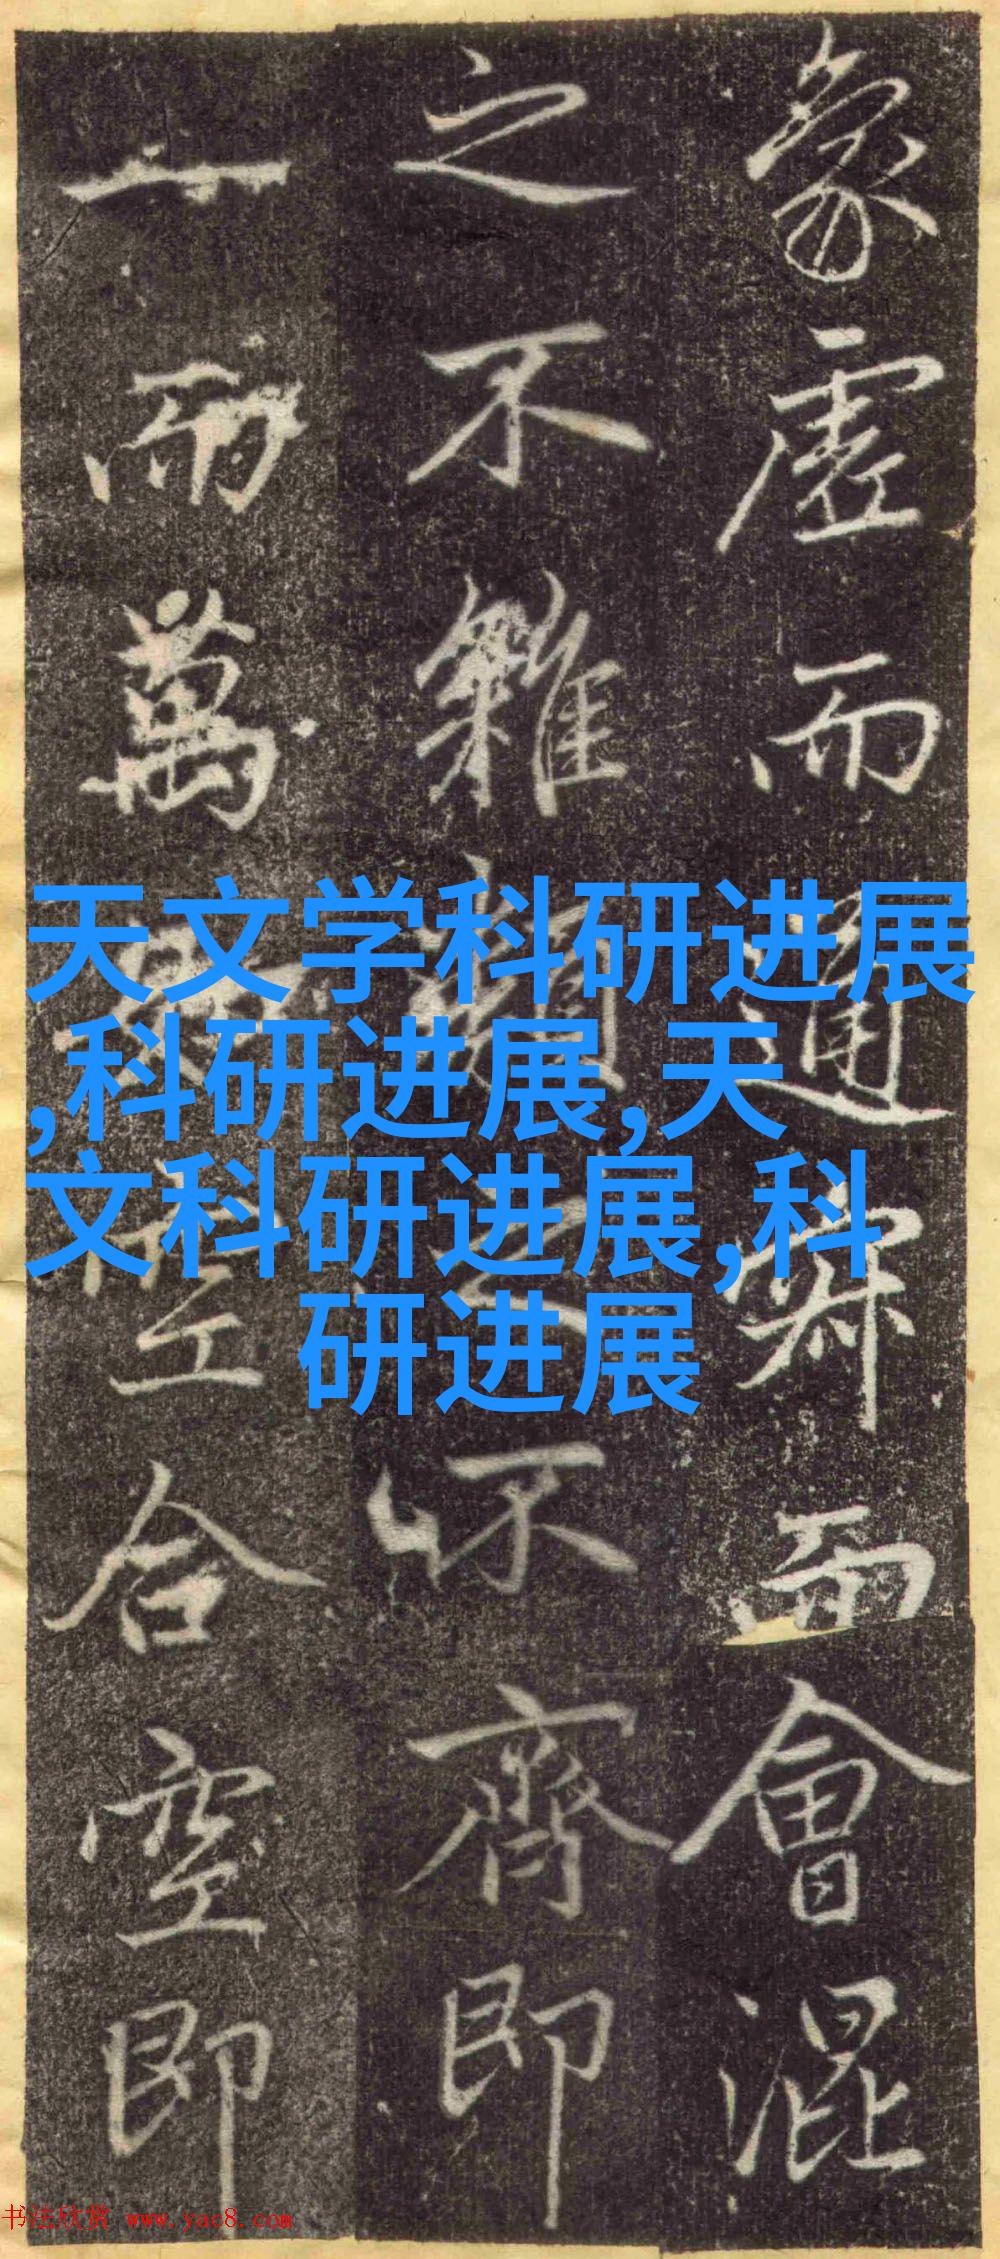 象虛而通寂而會混
之不雜類之不齊即
一而萬空合空即
天文学科研进展
,科研进展,天
文科研进展,科
研进展
书法欣赏 www.yac8.com